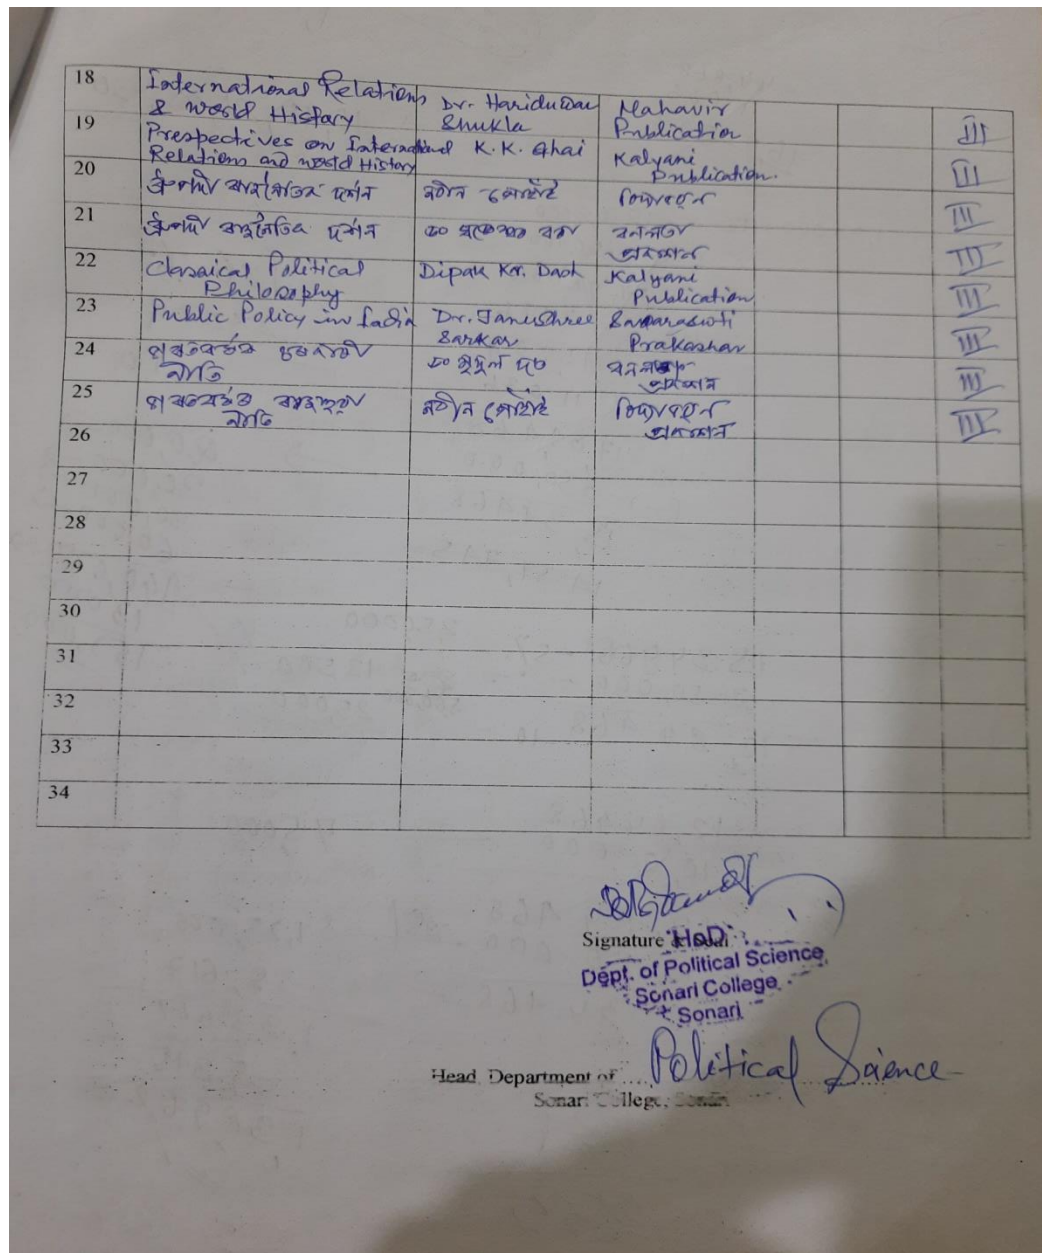 18 International Relations
& World History Dr. Haridwar Shukla Mahavir Publication III
19 Prespectives on International
Relations and World History K.K. Ghai Kalyani Publication. III
20 ধ্ৰুপদী ৰাজনৈতিক দৰ্শন নবীন গোহাঁই বিদ্যাভৱন III
21 ধ্ৰুপদী ৰাজনৈতিক দৰ্শন ড০ বৰা বনলতা প্ৰকাশন III
22 Classical Political
Philosophy Dipak Kr. Dash Kalyani Publication III
23 Public Policy in India Dr. Tanushree Sarkar Saraswoti Prakashan III
24 ভাৰতবৰ্ষৰ চৰকাৰী
নীতি ড০ মৃদুল দত্ত বনলতা প্ৰকাশন III
25 ভাৰতবৰ্ষৰ ৰাজহুৱা
নীতি নবীন গোহাঁই বিদ্যাভৱন প্ৰকাশন III
26
27
28
29
30
31
32
33
34
Signature & Seal
HoD
Dept. of Political Science
Sonari College
Sonari
Head Department of Political Science
Sonari College, Sonari